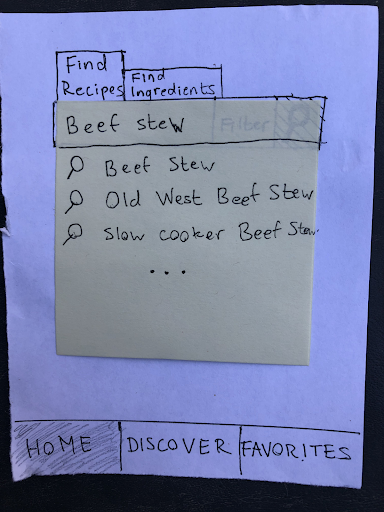 Find
Recipes
Find
Ingredients
Beef stew
Filter
Beef Stew
Old West Beef Stew
Slow cooker Beef Stew
...
HOME
DISCOVER
FAVORITES